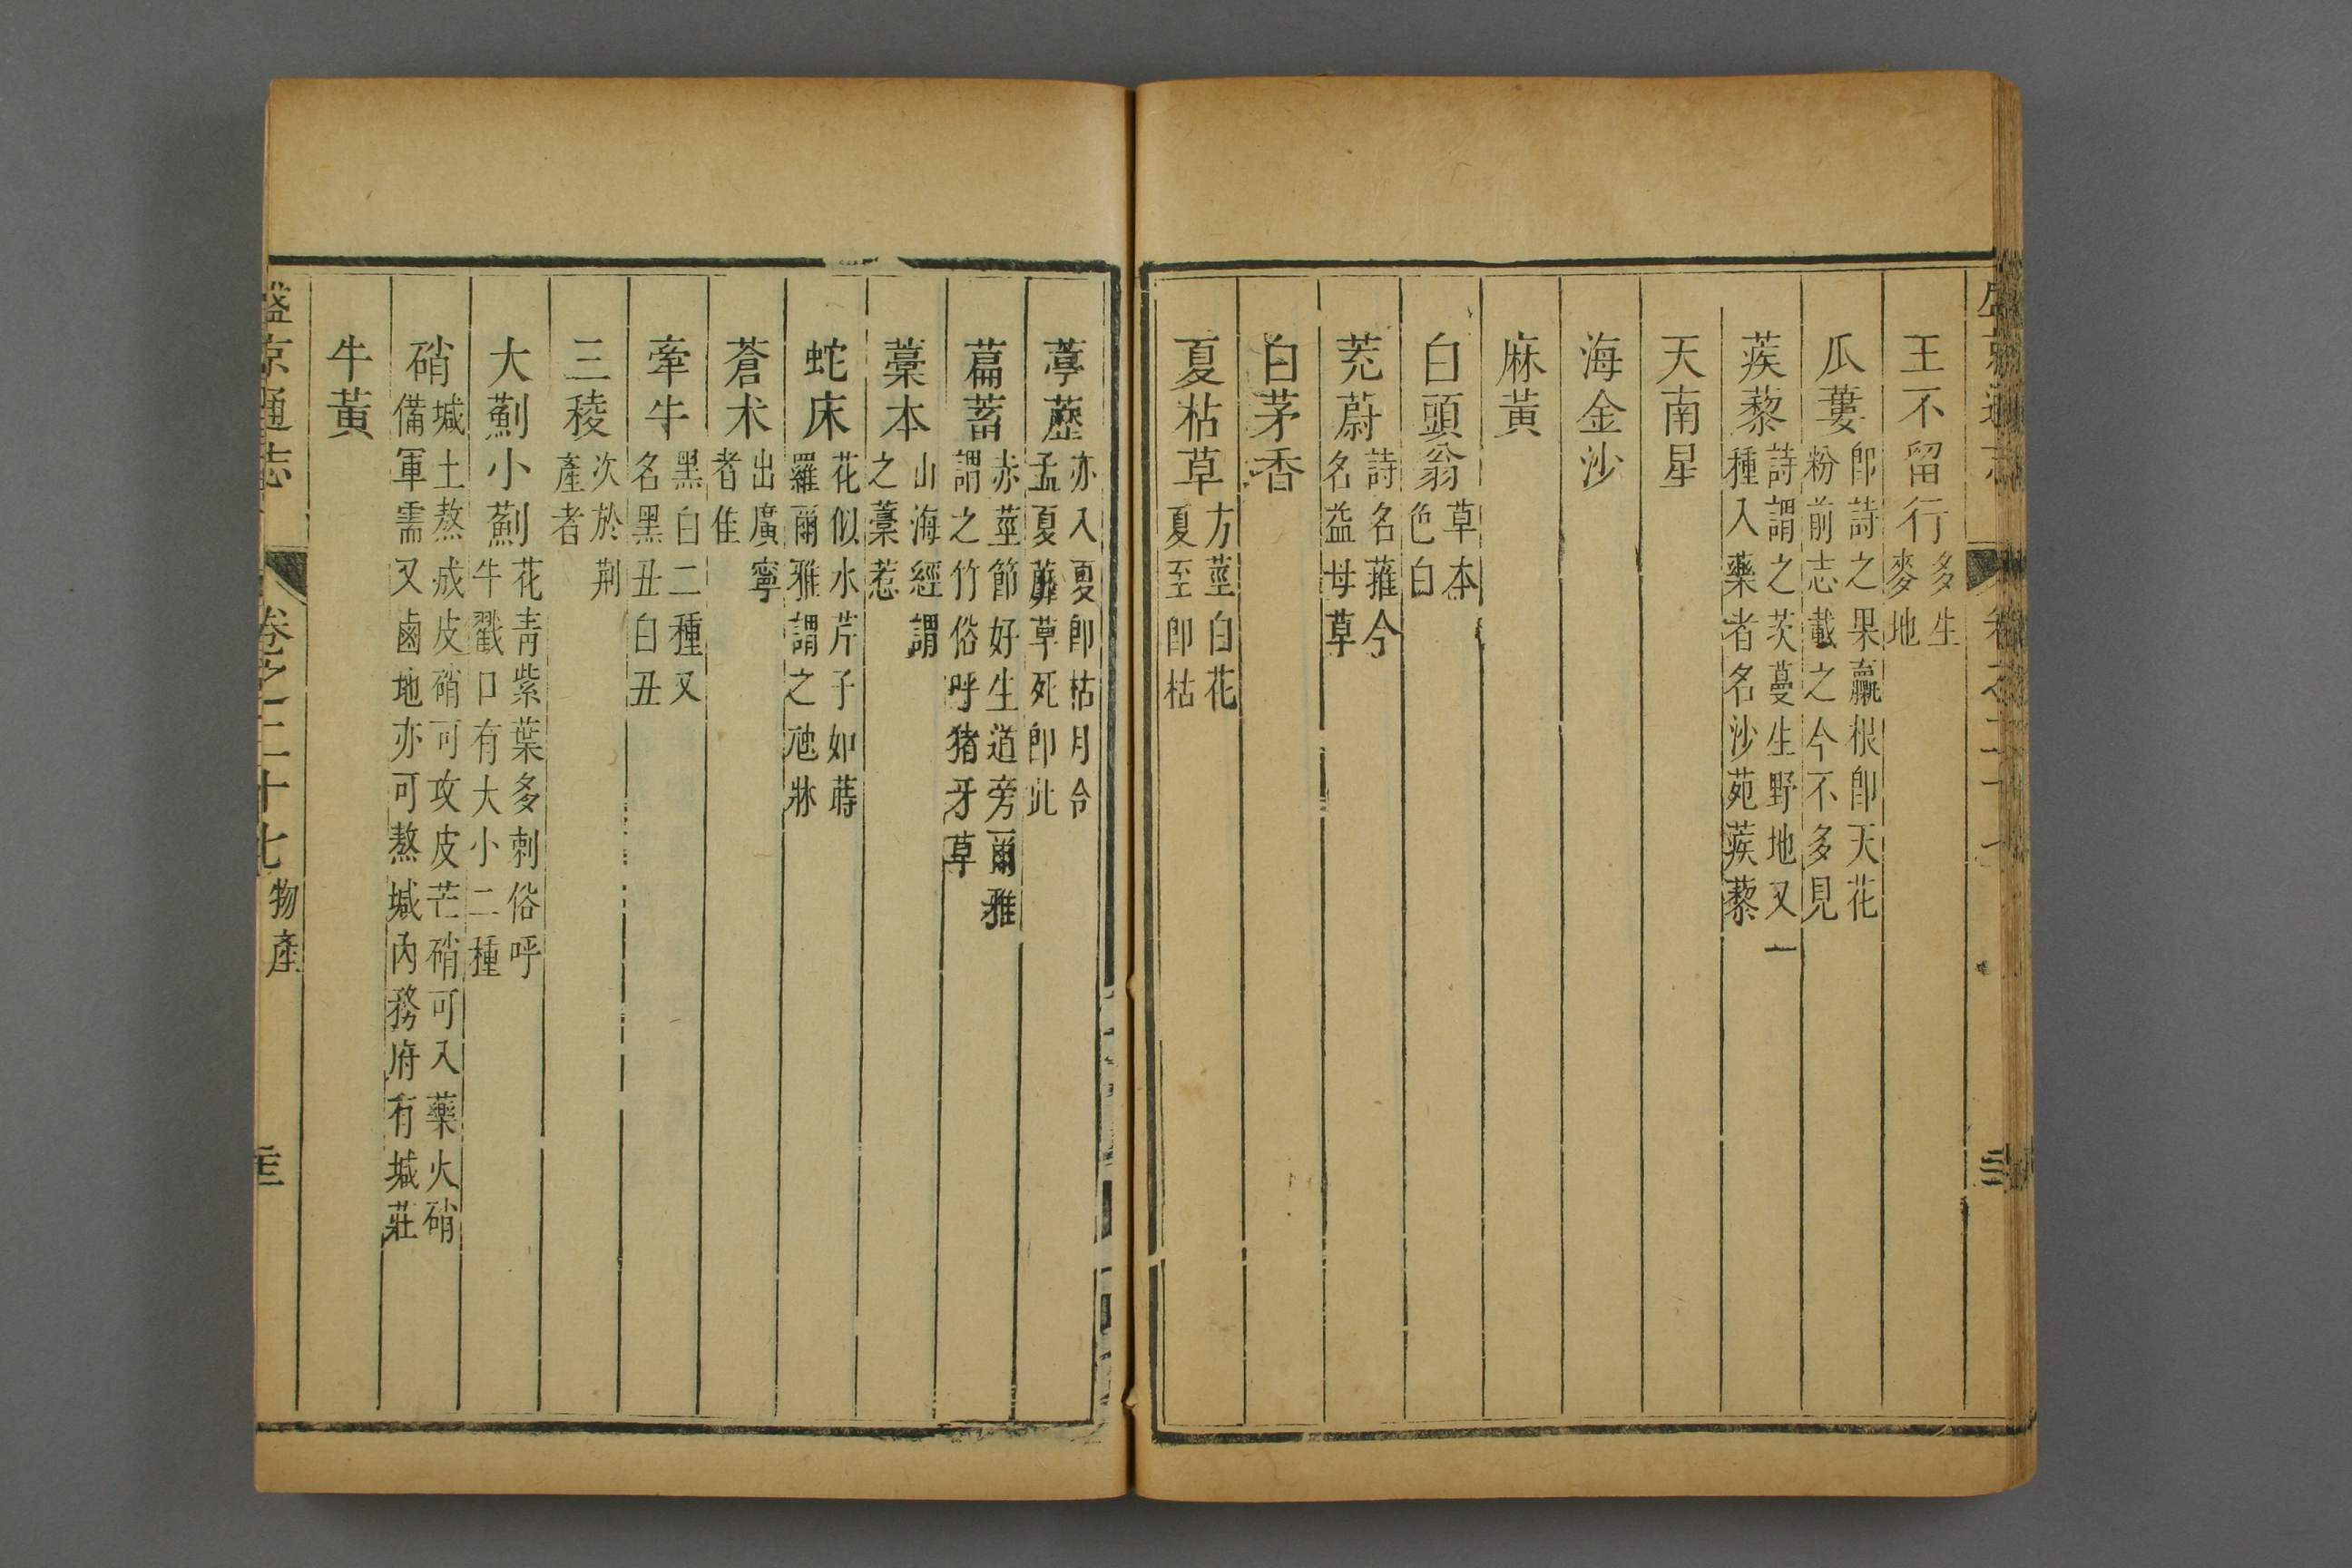 王不留行多生麥地
瓜蔞卽詩之果臝根卽天花粉前志載之今不多見
蒺藜詩謂之茨蔓生野地又一種入藥者名沙苑蒺藜
天南星
海金沙
麻黃
白頭翁草本色白
茺蔚詩名蓷今名益母草
白茅香
夏枯草方莖白花夏至卽枯
葶藶亦入夏卽枯月令孟夏蘼草死卽此
萹蓄赤莖節好生道旁爾雅謂之竹俗呼猪牙草
藁本山海經謂之藁茇
蛇床花似水芹子如蒔羅爾雅謂之虺牀
蒼术出廣寧者佳
牽牛黑白二種又名黑丑白丑
三稜次於荆產者
大薊小薊花青紫葉多刺俗呼牛戳口有大小二種
硝堿土熬成皮硝可攻皮芒硝可入藥火硝備軍需又鹵地亦可熬堿內務府有堿莊
牛黃
盛京通志 卷之二十七 物產